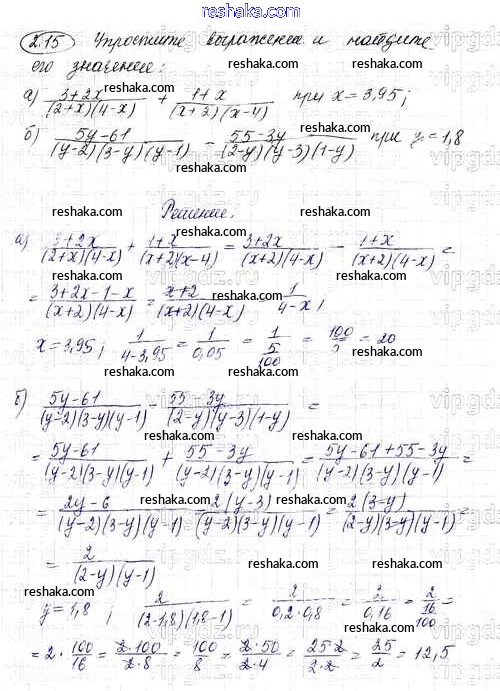 2.15 Упростите выражение и найдите
его значение:
а) (3+2x)/((2+x)(4-x)) + (1+x)/((x+2)(x-4)) при x=3,95;
б) (5y-61)/((y-2)(3-y)(y-1)) - (55-3y)/((2-y)(y-3)(1-y)) при y=1,8
Решение:
а) (3+2x)/((2+x)(4-x)) + (1+x)/((x+2)(x-4)) = (3+2x)/((x+2)(4-x)) - (1+x)/((x+2)(4-x)) =
= (3+2x-1-x)/((x+2)(4-x)) = (x+2)/((x+2)(4-x)) 1/(4-x);
x=3,95; 1/(4-3,95) = 1/0,05 = 1/(5/100) = 100/5 = 20
б) (5y-61)/((y-2)(3-y)(y-1)) - (55-3y)/((2-y)(y-3)(1-y)) =
= (5y-61)/((y-2)(3-y)(y-1)) + (55-3y)/((y-2)(3-y)(y-1)) = (5y-61+55-3y)/((y-2)(3-y)(y-1)) =
= (2y-6)/((y-2)(3-y)(y-1)) = 2(y-3)/((y-2)(3-y)(y-1)) = 2(3-y)/((2-y)(3-y)(y-1)) =
= 2/((2-y)(y-1))
y=1,8; 2/((2-1,8)(1,8-1)) = 2/(0,2·0,8) = 2/0,16 = 2/(16/100) =
= 2·100/16 = (2·100)/(2·8) = 100/8 = (2·50)/(2·4) = (25·2)/(2·2) = 25/2 = 12,5
reshaka.com
vipgdz